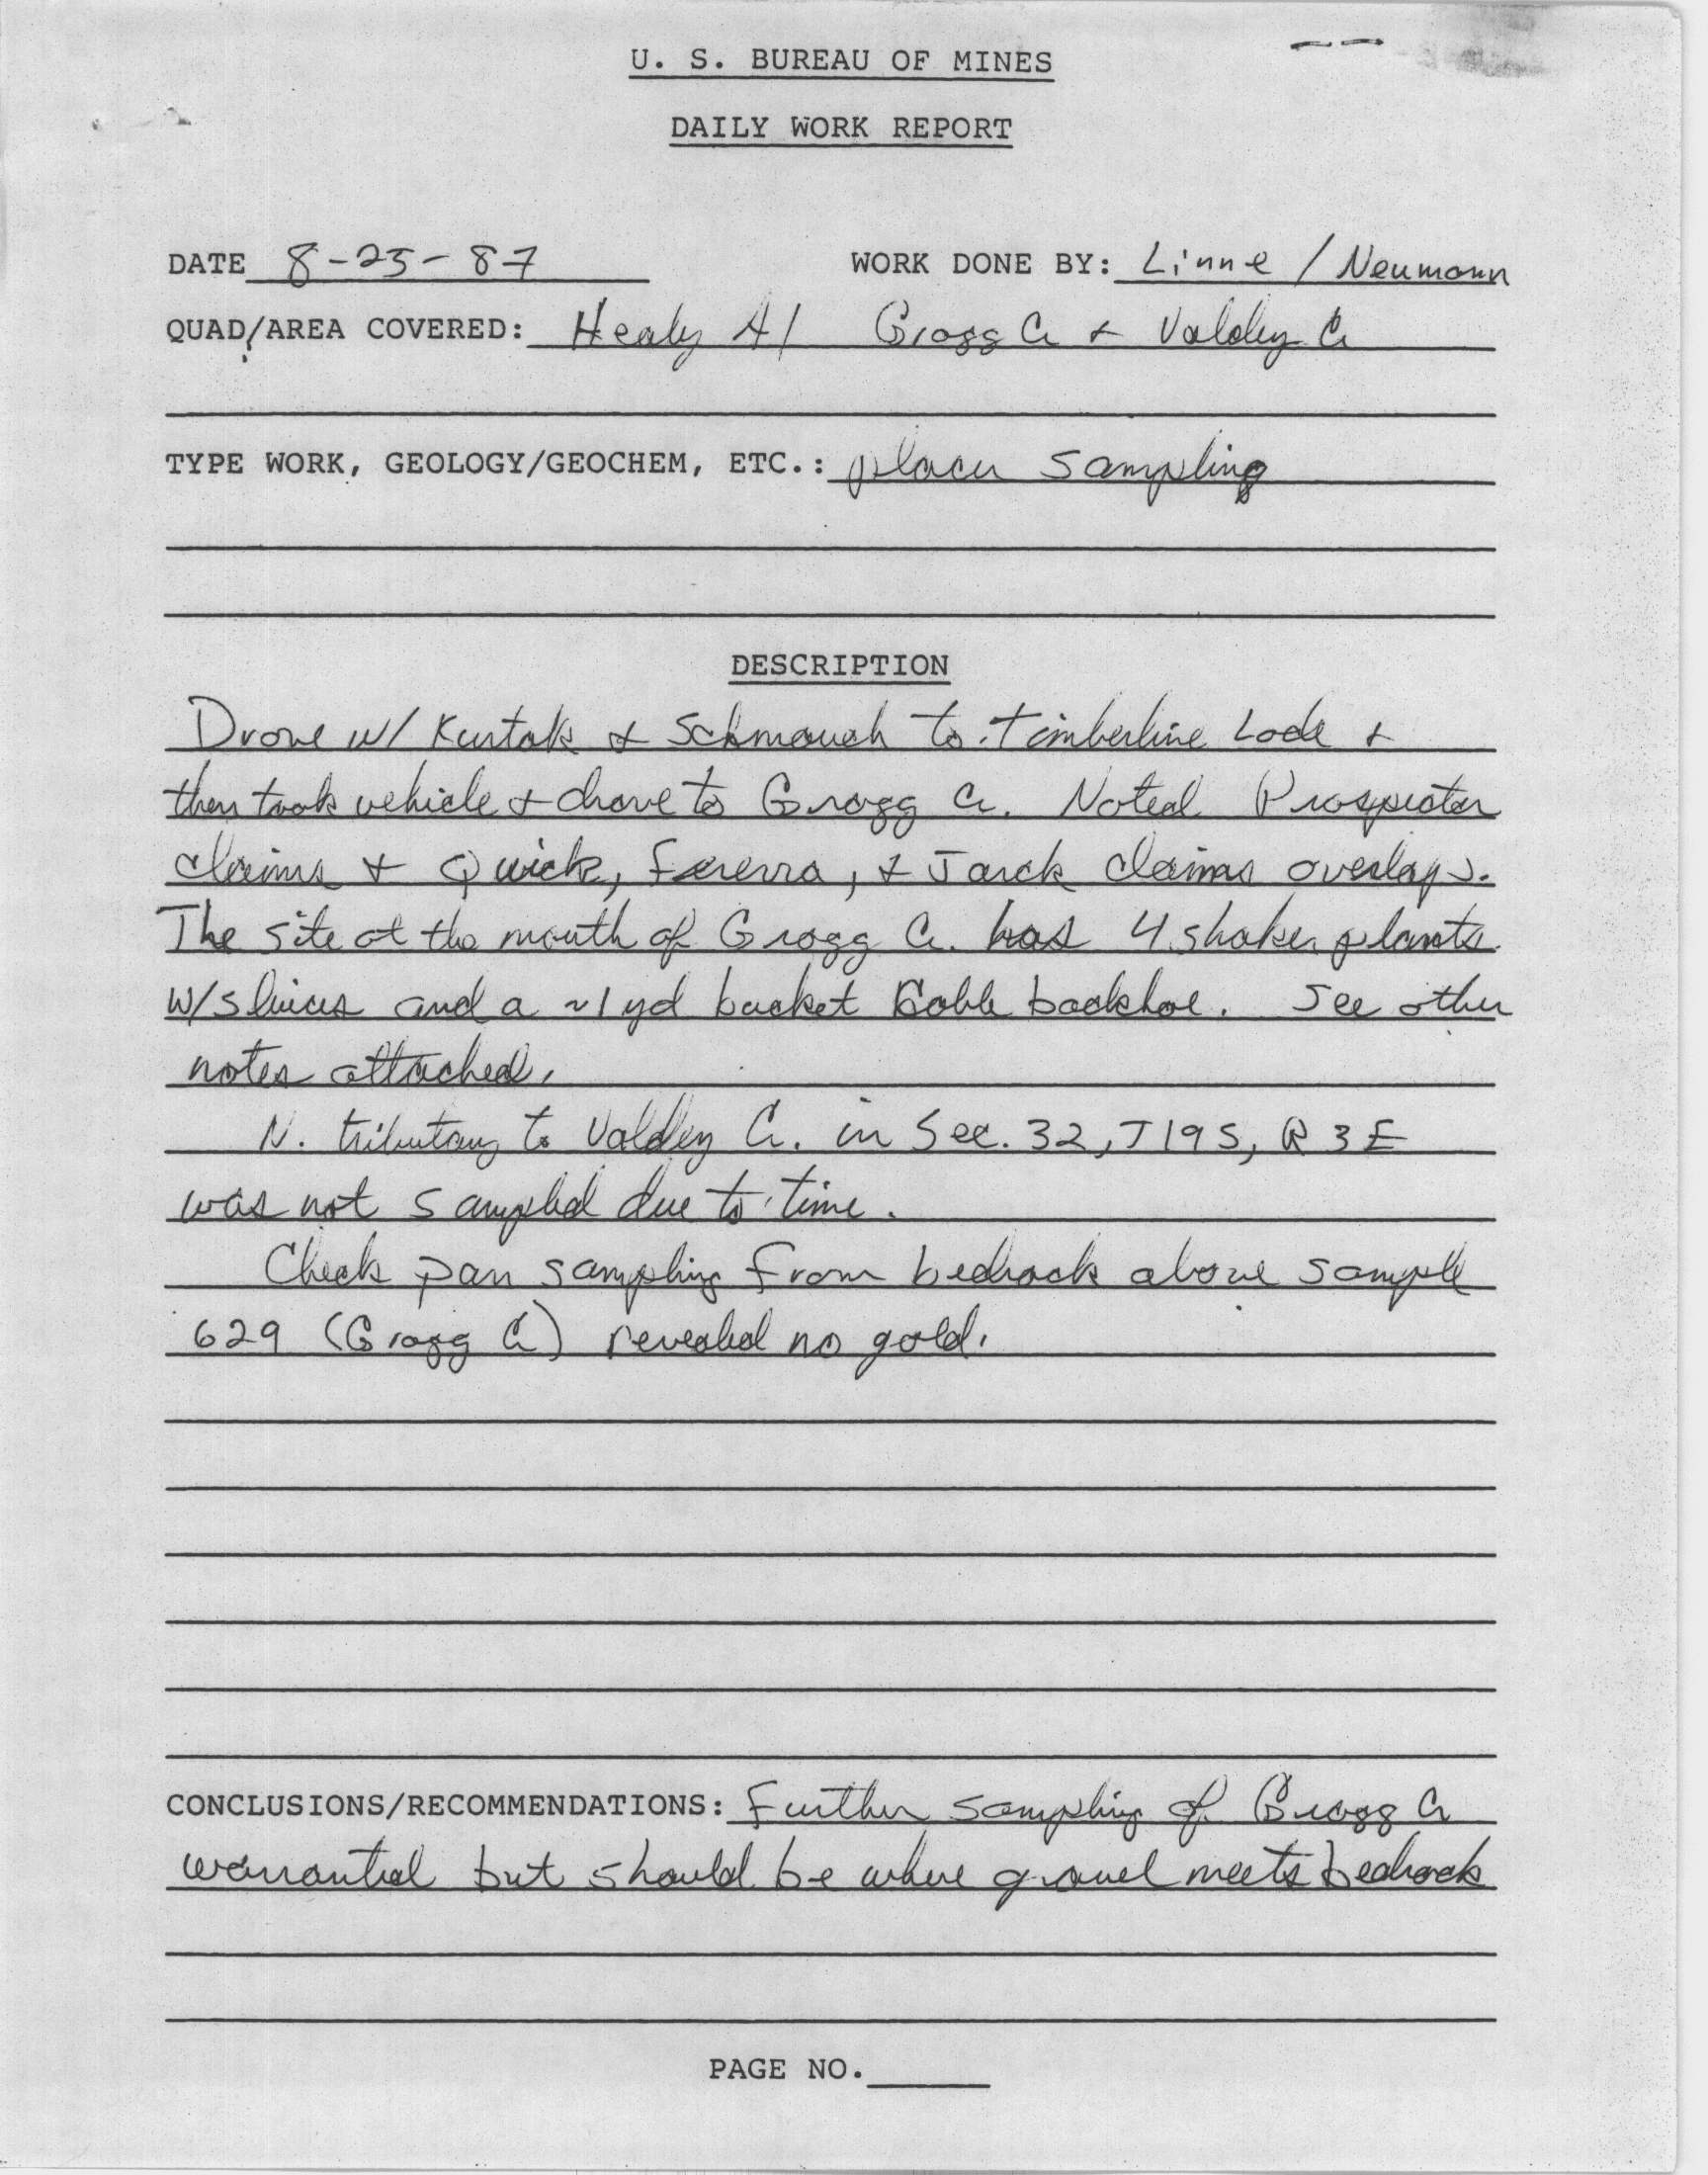 U. S. BUREAU OF MINES
DAILY WORK REPORT
DATE 8-25-87 WORK DONE BY: Linne / Neumann
QUAD/AREA COVERED: Healy A1 Grogg Cr + Valdez Cr
TYPE WORK, GEOLOGY/GEOCHEM, ETC.: placer sampling
DESCRIPTION
Drove w/ Kurtak & Schmauch to Timberline Lode +
then took vehicle + drove to Grogg Cr. Noted Prospector
claims + Quick, & claims overlap.
The site at the mouth of Grogg Cr. has 4 shaker plants
w/sluices and a ~1 yd bucket backhoe. See other
notes attached.
N. tributary to Valdez Cr. in Sec. 32, T19S, R3E
was not sampled due to time.
Check pan sampling from bedrock above sample
629 (Grogg Cr) revealed no gold.
CONCLUSIONS/RECOMMENDATIONS: Further sampling of Grogg Cr
warranted but should be where gravel meets bedrock
PAGE NO.